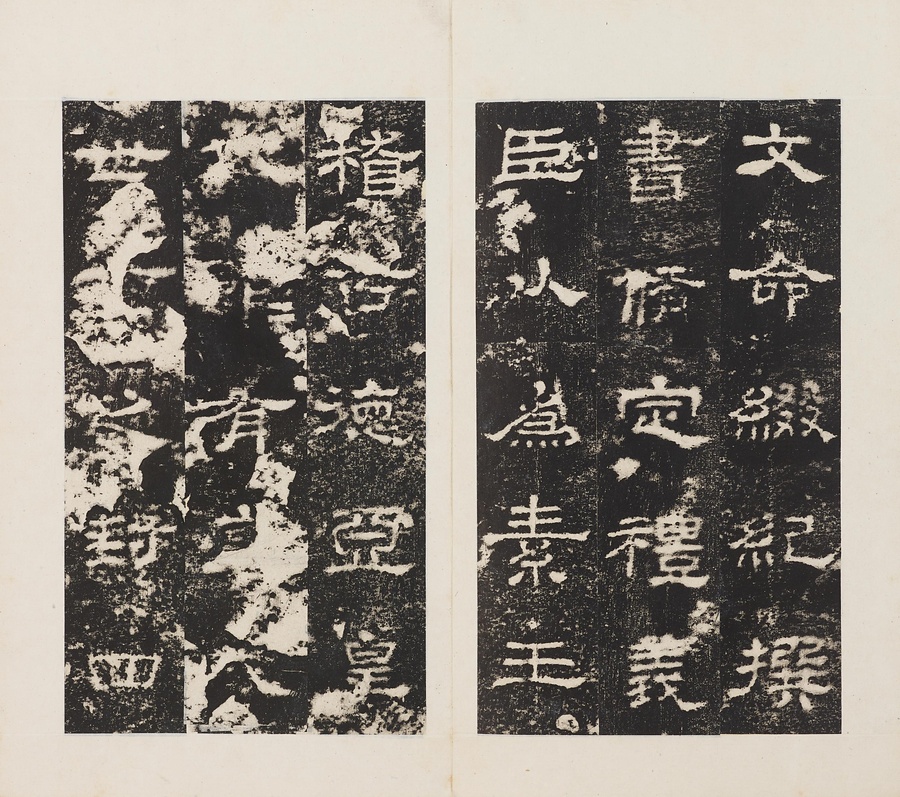 文命綴紀撰
書脩定禮義
臣以為素王
稽古德亞皇
有
世之封四